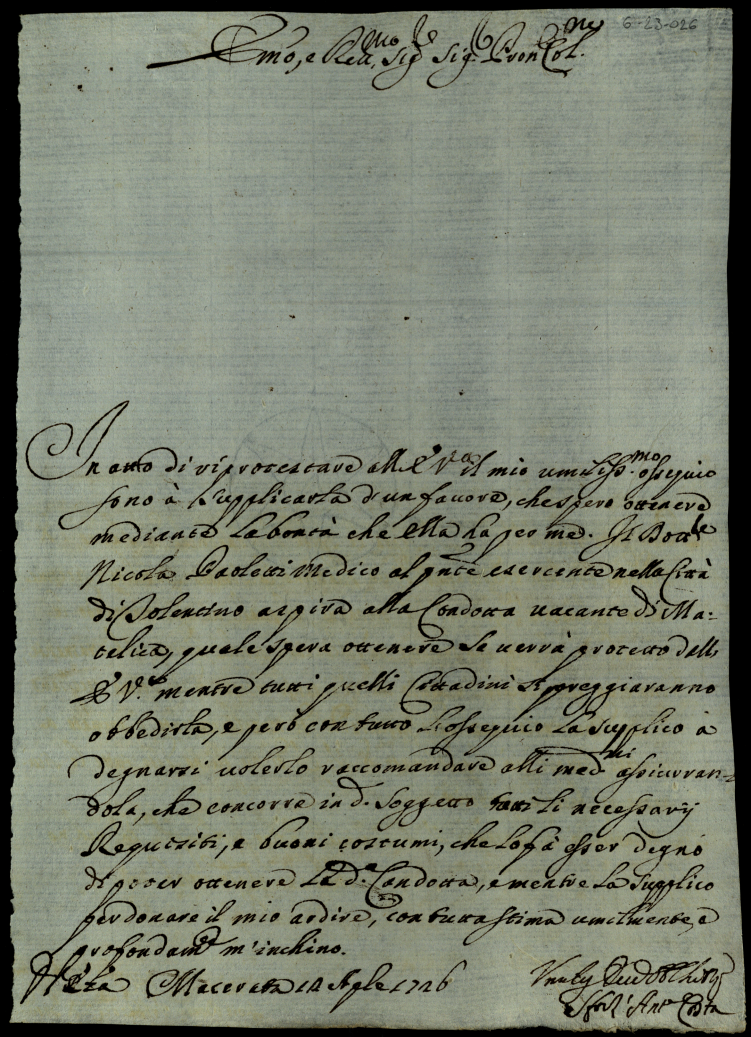 6-23-026
Emo, e Rev.mo Sig.re Sig.r Pron Col.mo
In atto di riprotestare all'E. V.a il mio umiliss.mo ossequio
sono à supplicarla d'un favore, che spero ottenere
mediante la bontà che ella ha per me. Il Dott.re
Nicola Paoletti Medico al pnte esercente nella Città
di Tolentino aspira alla Condotta vacante di Ma-
telica, quale spera ottenere se verrà protetto dall'
E. V.a mentre tutti quelli Cittadini si preggiaranno
obbedirla, e però con tutto l'ossequio la supplico à
degnarsi volerlo raccomandare alli med.mi assicuran-
dola, che concorre in d.o Soggetto tutti li necessarij
Requisiti, e buoni costumi, che lo fà esser degno
di poter ottenere la d.a Condotta, e mentre la supplico
perdonare il mio ardire, con tutta stima umilmente, e
profondam.te m'inchino.
Macerata 12 Aple 1726
Costa